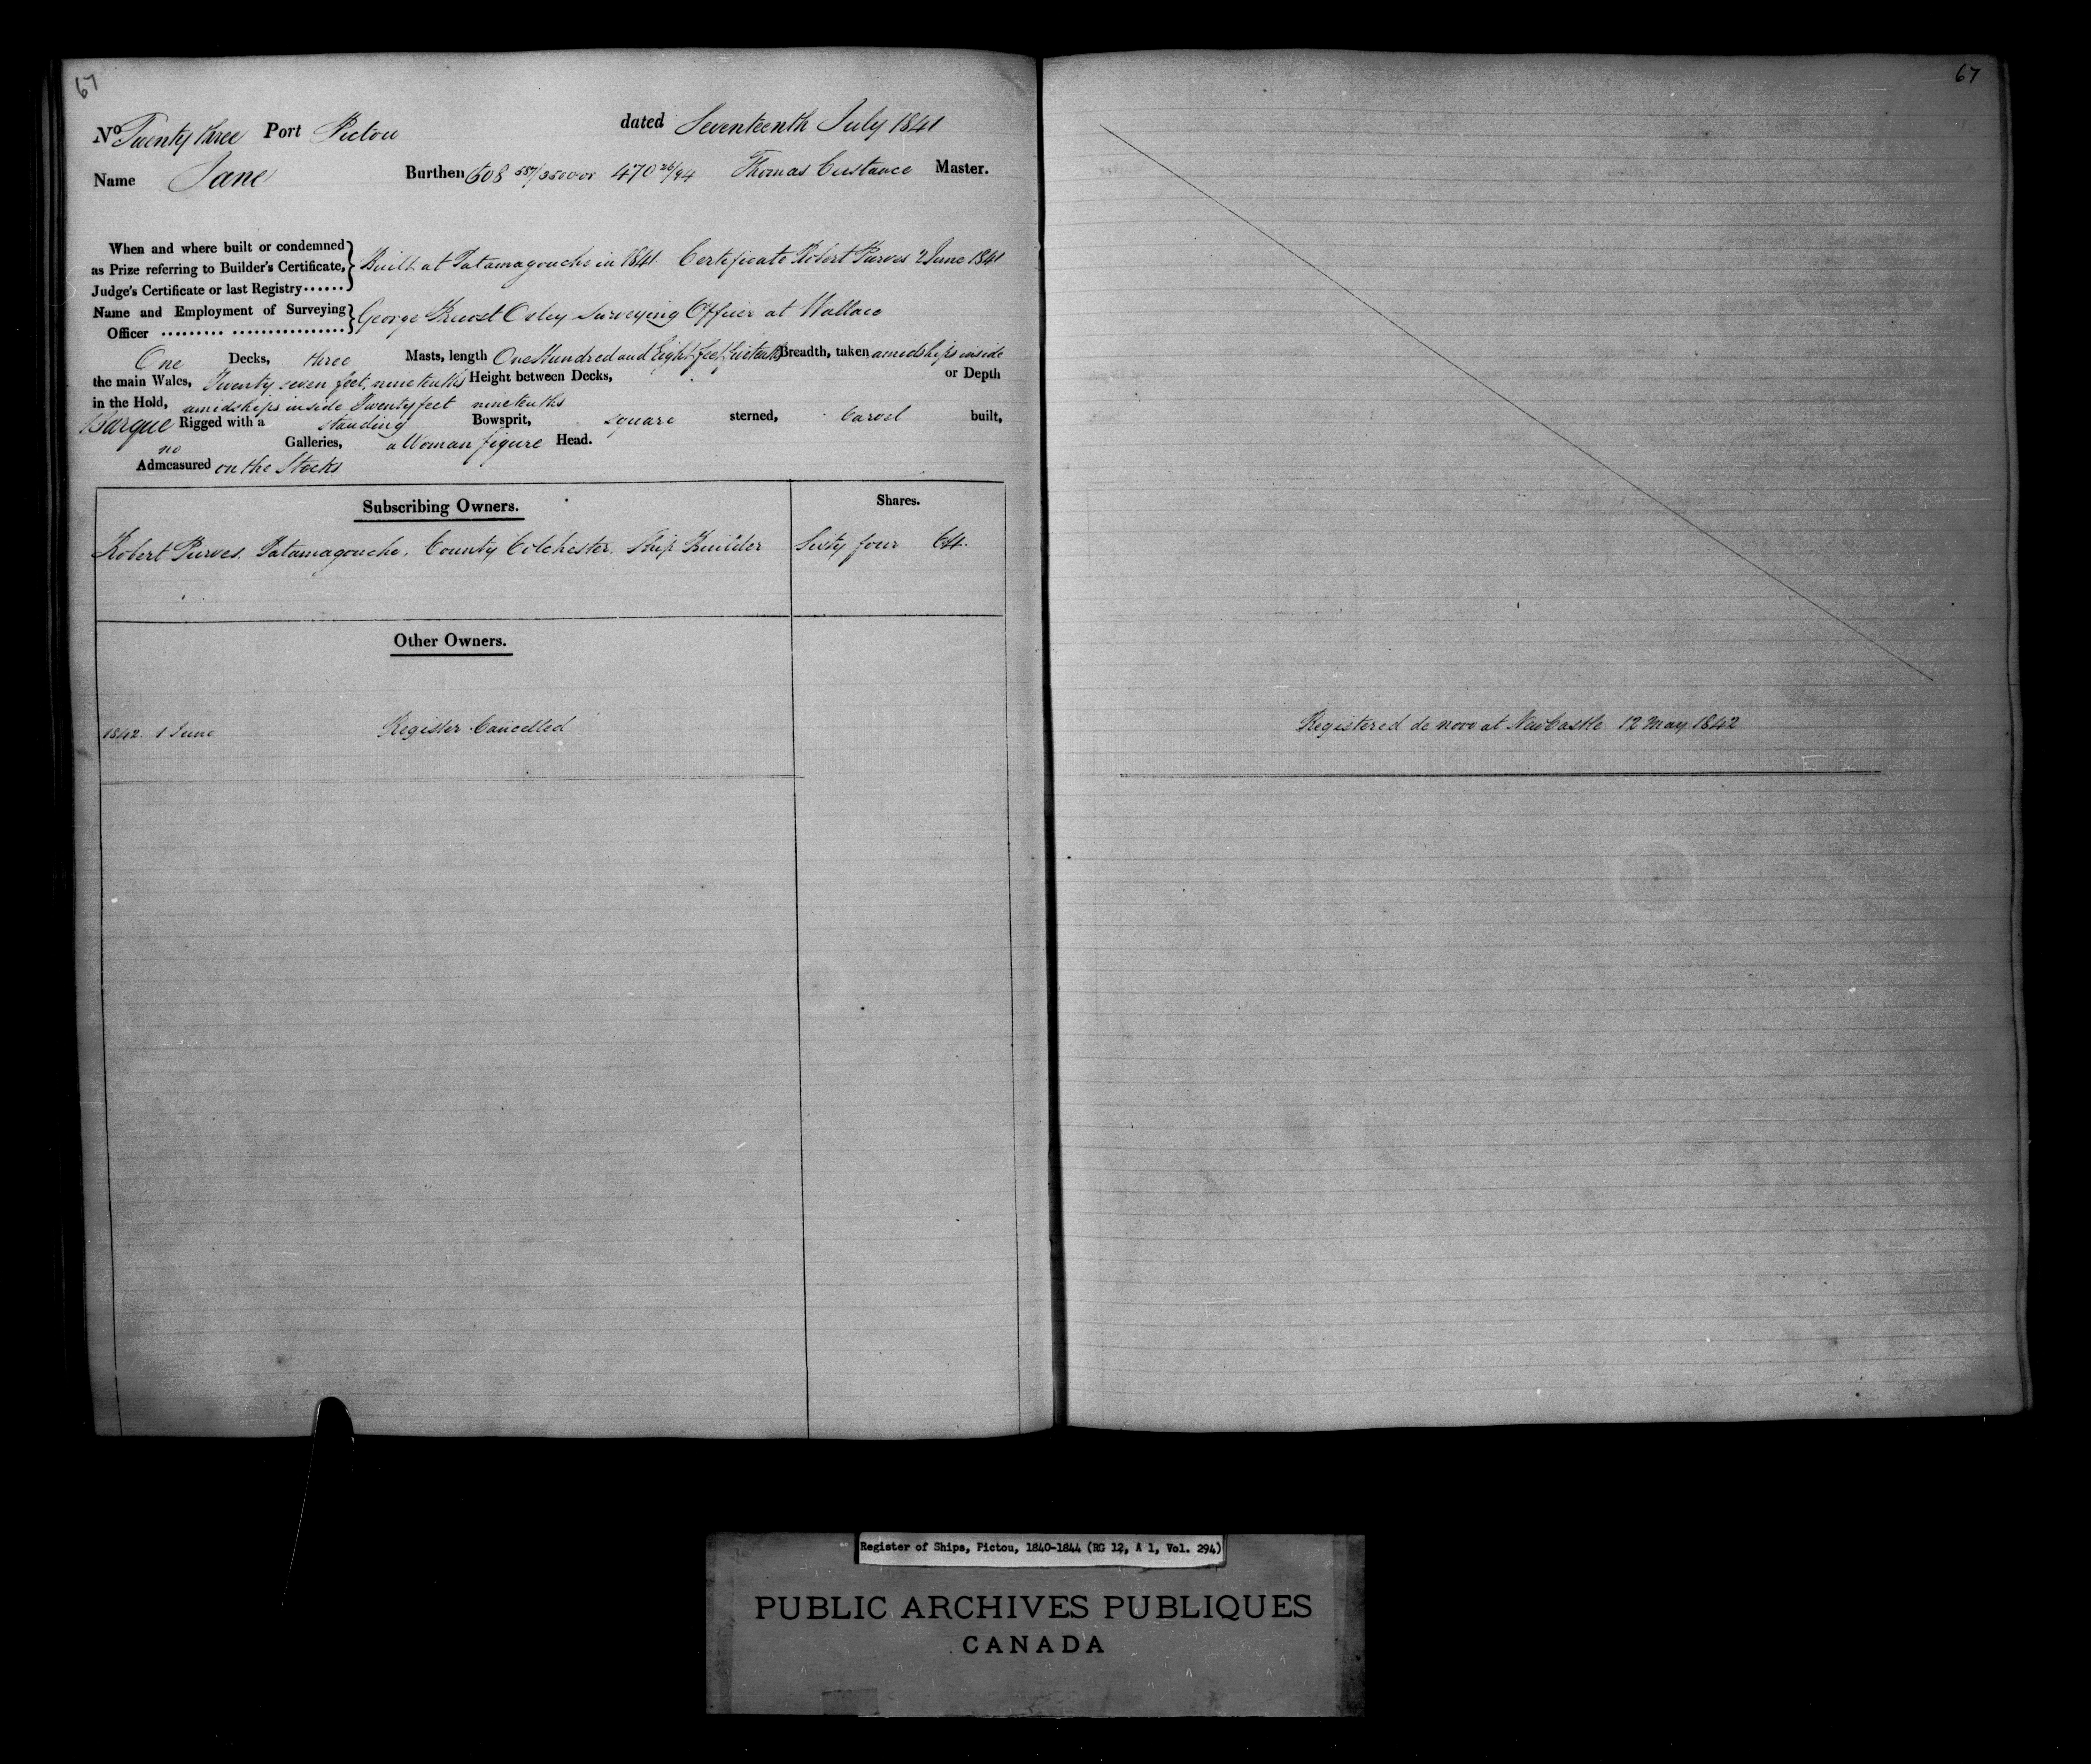 67
67
No Twenty three Port Pictou dated Seventeenth July 1841
Name Jane Burthen 608 557/3500 or 470 26/94 Thomas Custance Master.
When and where built or condemned
as Prize referring to Builder's Certificate, Built at Tatamagouche in 1841. Certificate Robert Purves 2 June 1841
Judge's Certificate or last Registry......
Name and Employment of Surveying George Oxley Surveying Officer at Wallace
Officer ......... ................
One Decks, three Masts, length One Hundred and Eight feet Breadth, taken amidships inside
the main Wales, Twenty seven feet, nine tenths Height between Decks, or Depth
in the Hold, amidships inside Twenty feet nine tenths
Barque Rigged with a standing Bowsprit, square sterned, Carvel built,
no Galleries, a Woman figure Head.
Admeasured on the Stocks
Subscribing Owners. Shares.
Robert Purves. Tatamagouche. County Colchester. Ship Builder Sixty four 64.
Other Owners.
1842. 1 June Register Cancelled Registered de novo at NewCastle 12 May 1842
Register of Ships, Pictou, 1840-1844 (RG 12, A 1, Vol. 294)
PUBLIC ARCHIVES PUBLIQUES
CANADA